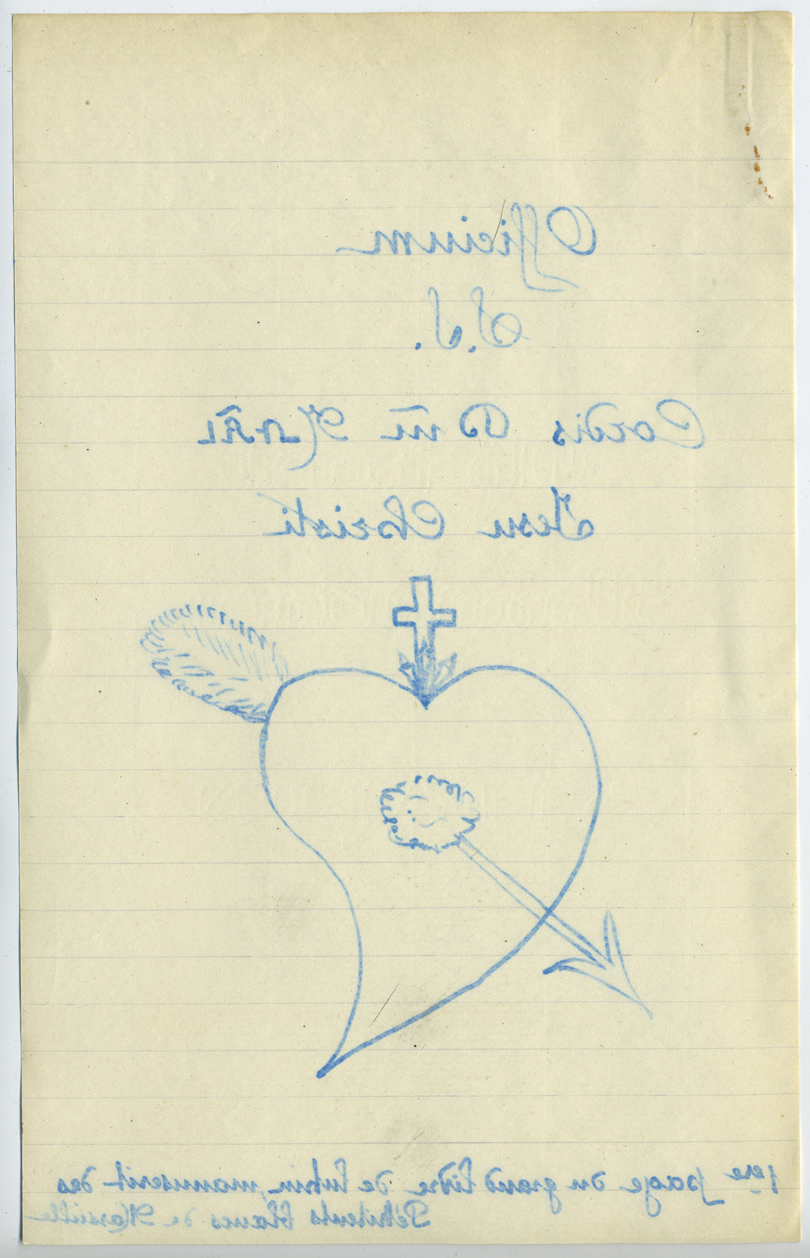 Officium
S.S.
Cordis Dñi Nrĩ
Jesu Christi
1ere page du grand livre de lutrin, manuscrit des
Pénitents blancs de Marseille